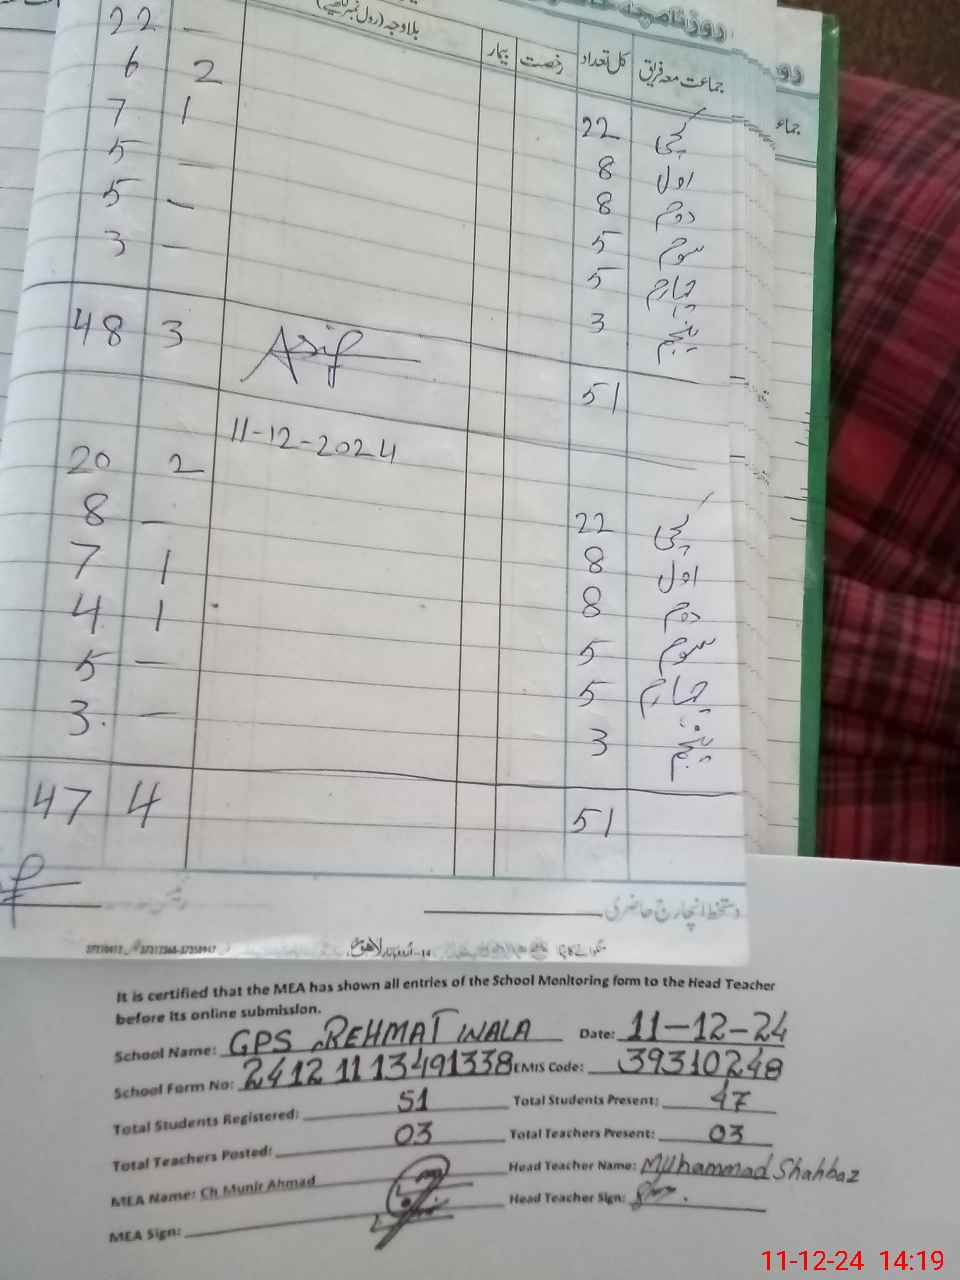 روزنامچہ
جماعت معہ فریق کل تعداد رخصت بیمار بلاوجہ (رول نمبر لکھیے)
کچی 22 — 22
اول 8 2 6
دوم 8 1 7
سوم 5 — 5
چہارم 5 — 5
پنجم 3 — 3
51 3 48
Asif
11-12-2024
کچی 22 2 20
اول 8 — 8
دوم 8 1 7
سوم 5 1 4
چہارم 5 — 5
پنجم 3 — 3.
51 4 47
دستخط انچارج حاضری
It is certified that the MEA has shown all entries of the School Monitoring form to the Head Teacher
before its online submission.
School Name: GPS REHMAT WALA Date: 11-12-24
School Form No: 2412 11 13491338 EMIS Code: 39310248
Total Students Registered: 51 Total Students Present: 47
Total Teachers Posted: 03 Total Teachers Present: 03
MEA Name: Ch Munir Ahmad Head Teacher Name: Muhammad Shahbaz
MEA Sign: Head Teacher Sign:
11-12-24 14:19